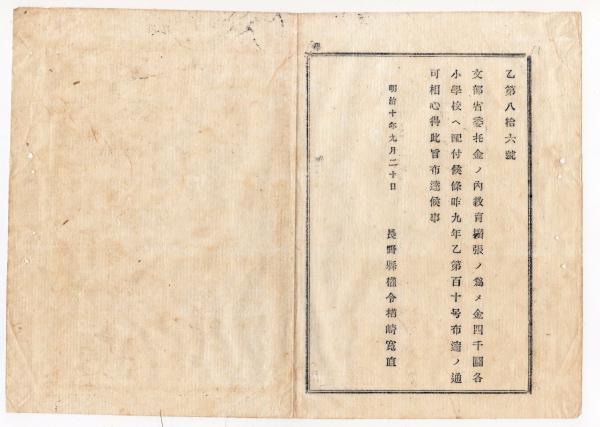 乙第八拾六號
文部省委托金ノ內敎育擴張ノ爲メ金四千圓各
小學校ヘ配付候條昨九年乙第百十号布達ノ通
可相心得此旨布達候事
明治十年九月二十日
長野縣權令楢崎寬直